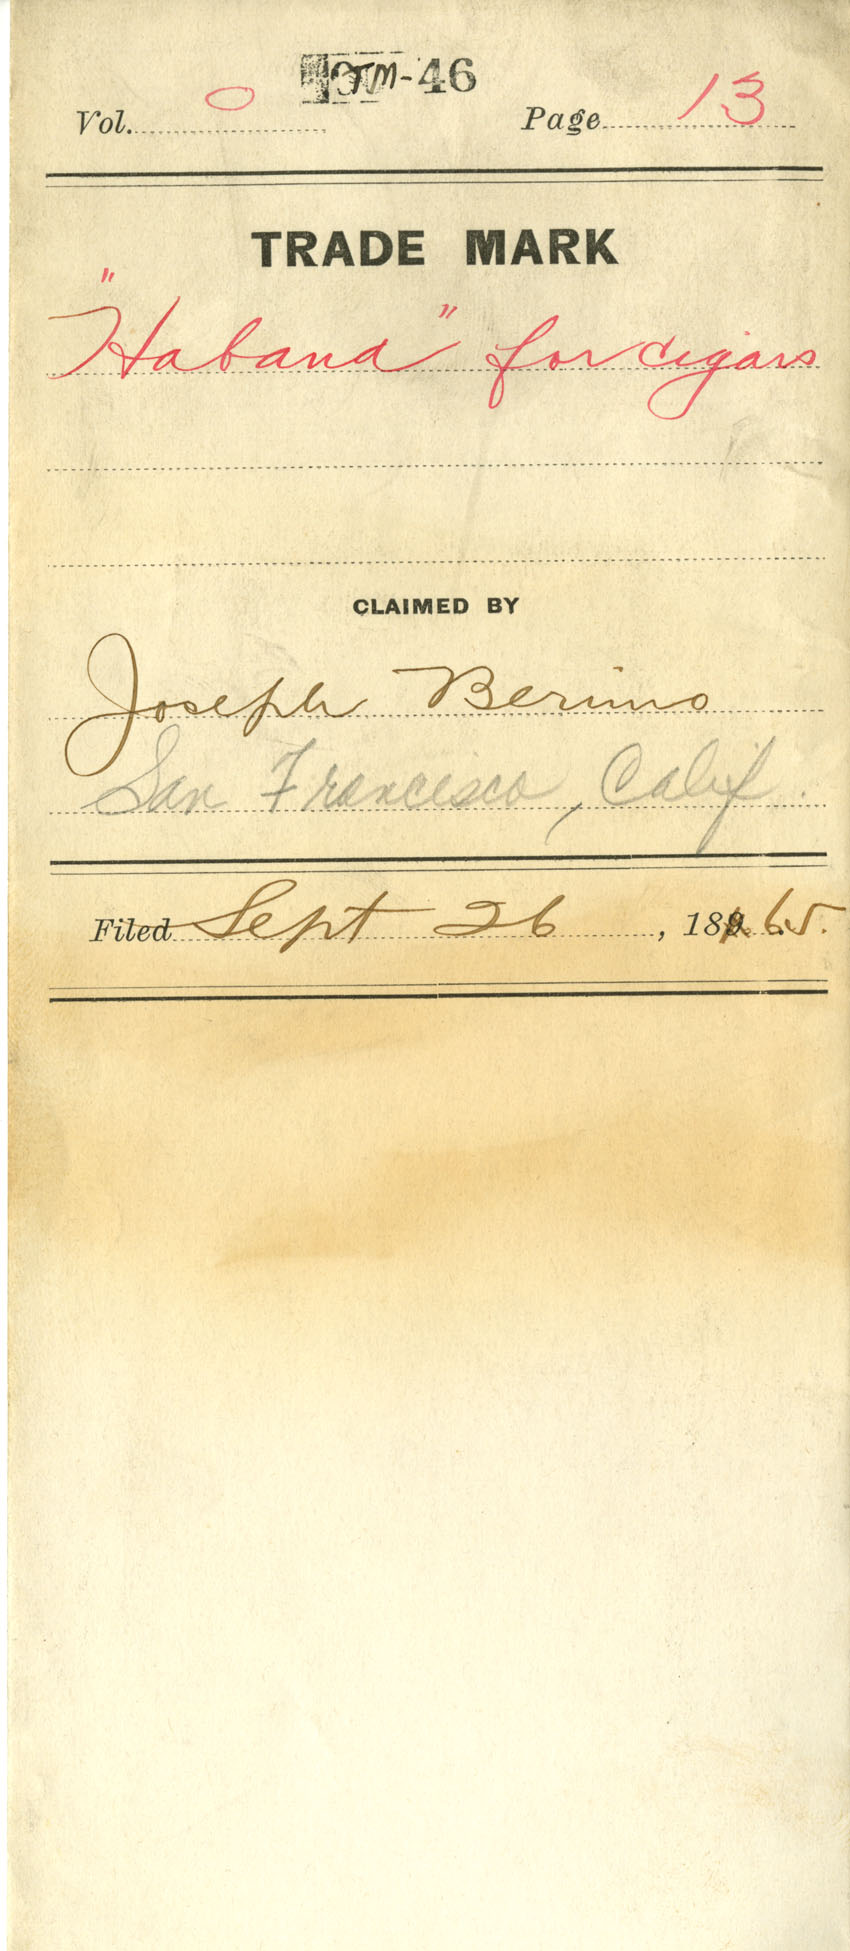 TM-46
Vol. 0 Page 13
TRADE MARK
"Habana" for cigars
CLAIMED BY
Joseph Berimo
San Francisco, Calif.
Filed Sept 26, 1865.